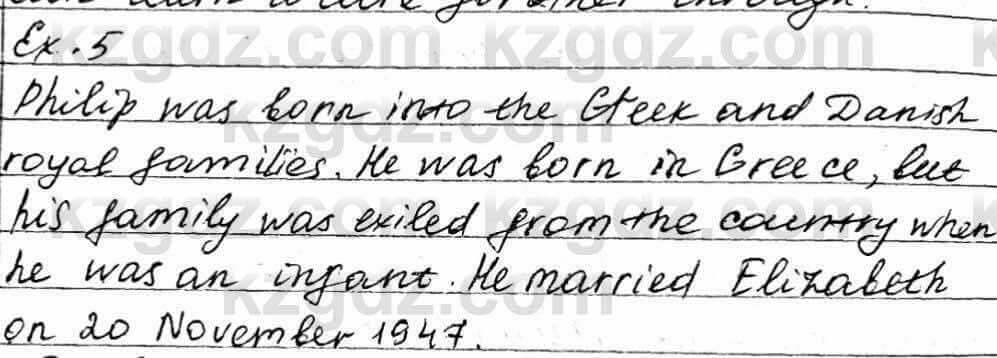 Ex. 5
Philip was born into the Greek and Danish
royal families. He was born in Greece, but
his family was exiled from the country when
he was an infant. He married Elizabeth
on 20 November 1947.
kzgdz.com kzgdz.com
kzgdz.com
kzgdz.com kzgdz.com
kzgdz.com
kzgdz.com